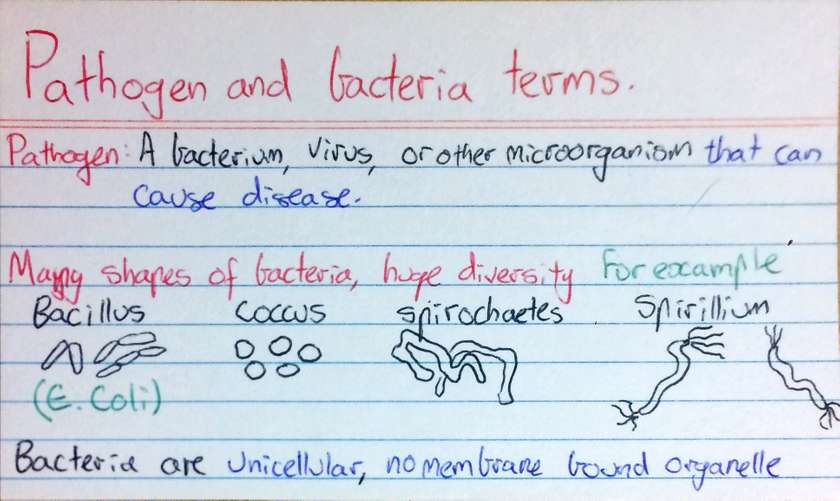 Pathogen and bacteria terms.
Pathogen: A bacterium, virus, or other microorganism that can
cause disease.
Many shapes of bacteria, huge diversity For example
Bacillus coccus spirochaetes Spirillium
(E. Coli)
Bacteria are unicellular, no membrane bound organelle